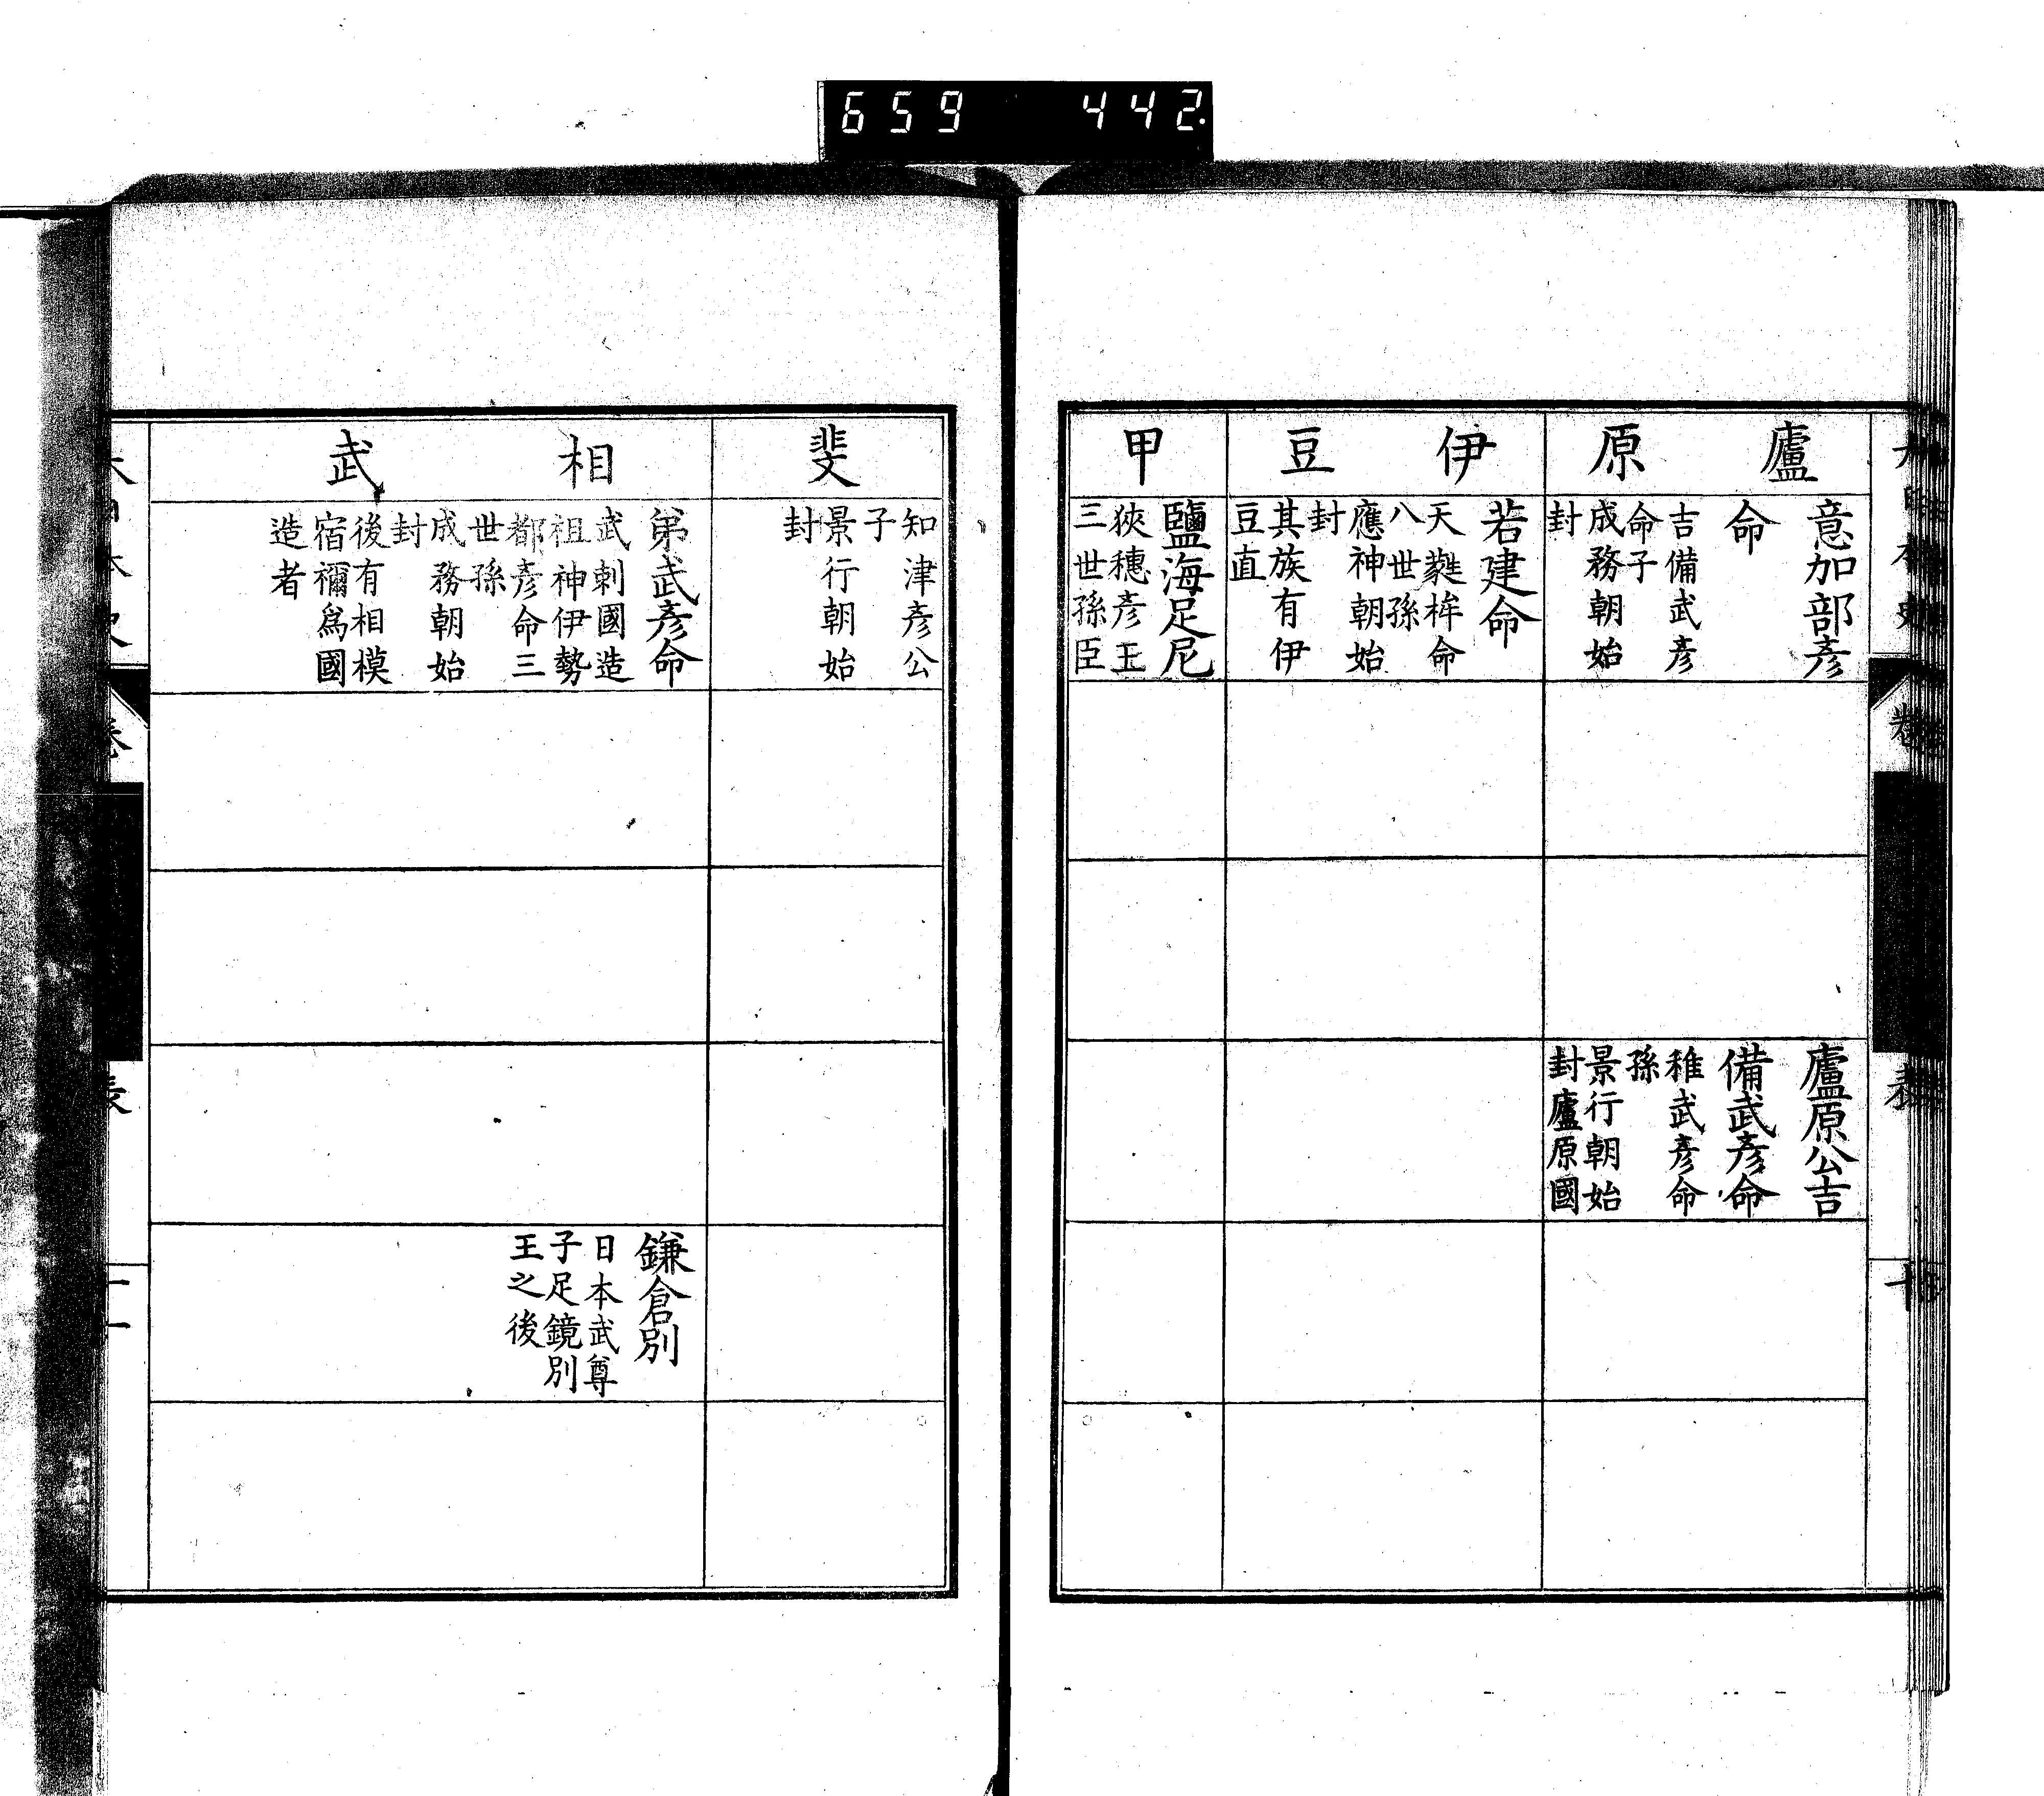 659 442
廬原
意加部彥
命
吉備武彥
命子
成務朝始
封
廬原公吉
備武彥命
稚武彥命
孫
景行朝始
封廬原國
伊豆
若建命
天蕤桙命
八世孫
應神朝始
封
其族有伊
豆直
甲
鹽海足尼
狹穗彥王
三世孫臣
斐
知津彥公
子
景行朝始
封
相武
弟武彥命
武刺國造
祖神伊勢
都彥命三
世孫
成務朝始
封
後有相模
宿禰爲國
造者
鎌倉別
日本武尊
子足鏡別
王之後